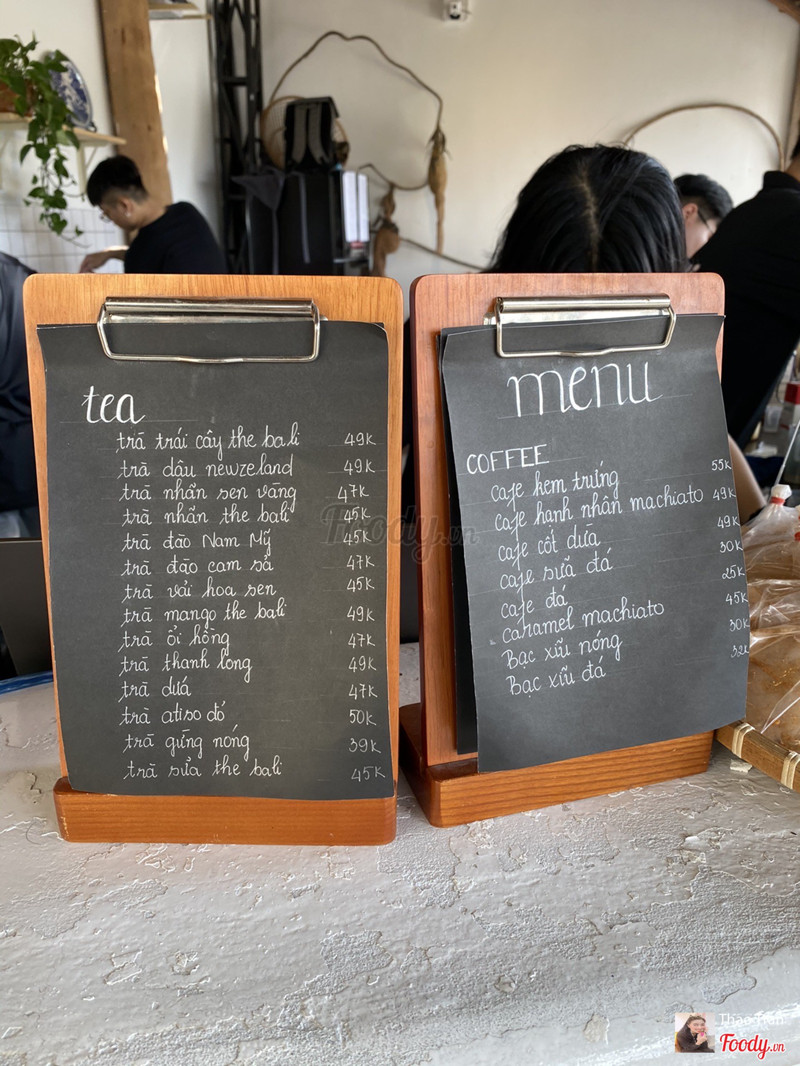 tea
trà trái cây the bali 49K
trà dâu newzeland 49K
trà nhãn sen vàng 47K
trà nhãn the bali 45K
trà đào Nam Mỹ 45K
trà đào cam sả 47K
trà vải hoa sen 45K
trà mango the bali 49K
trà ổi hồng 47K
trà thanh long 49K
trà dứa 47K
trà atiso đỏ 50K
trà gừng nóng 39K
trà sữa the bali 45K
menu
COFFEE
cafe kem trứng 55K
cafe hạnh nhân machiato 49K
cafe cốt dừa 49K
cafe sữa đá 30K
cafe đá 25K
caramel machiato 45K
Bạc xĩu nóng 30K
Bạc xĩu đá 32K
Foody.vn
Foody.vn